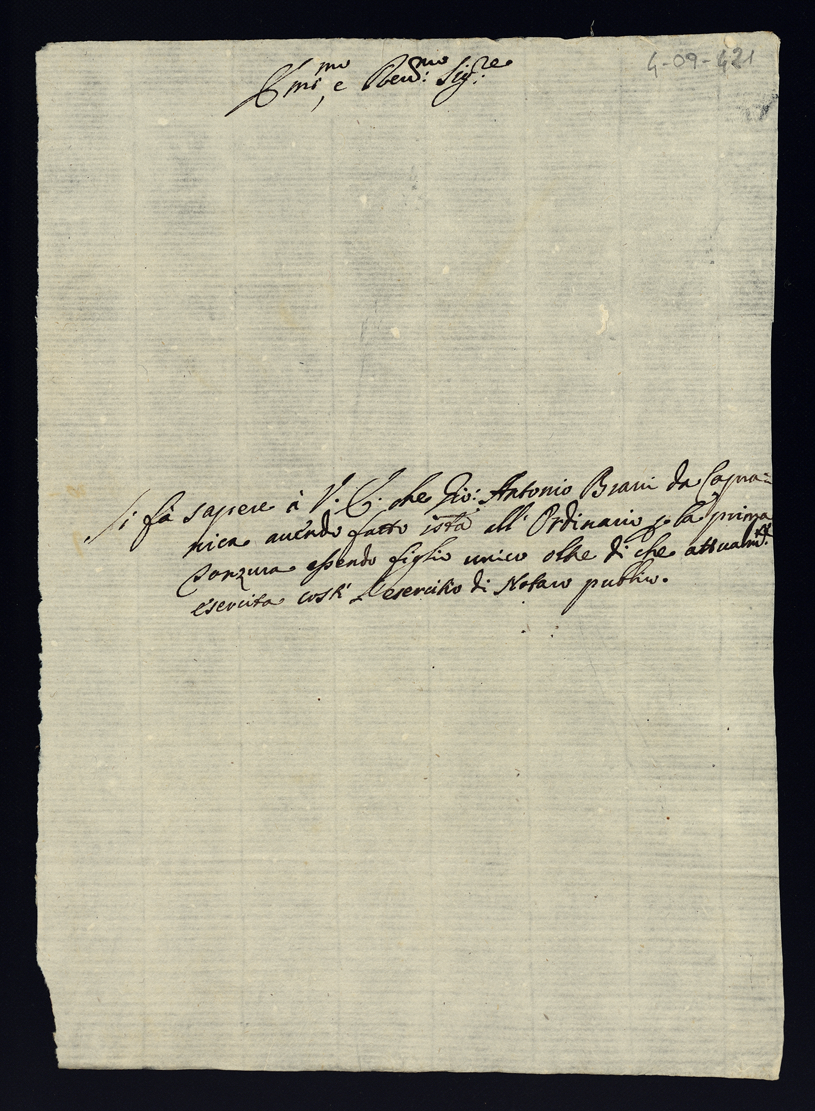 4-09-421
Emi^mo, e Reu^mo: Sig^re:
Si fà sapere à V. E. che Gio: Antonio Biani da Capra=
nica auendo fatto ista all' Ordinario p la prima
Tonzura essendo figlio unico oltre di che attualm^te:
esercita costì l'esercitio di Notaro publico.